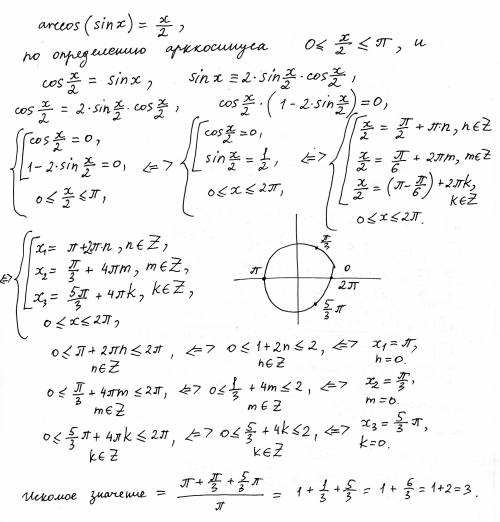 arccos(sinx) = x/2,
по определению арккосинуса 0 ≤ x/2 ≤ π, и
cos x/2 = sinx, sinx ≡ 2·sin x/2 · cos x/2,
cos x/2 = 2·sin x/2 · cos x/2, cos x/2 · (1 - 2·sin x/2) = 0,
{ [ cos x/2 = 0, <=> { [ cos x/2 = 0, <=> { [ x/2 = π/2 + π·n, n∈Z
1 - 2·sin x/2 = 0, sin x/2 = 1/2, x/2 = π/6 + 2πm, m∈Z
0 ≤ x/2 ≤ π, 0 ≤ x ≤ 2π, x/2 = (π - π/6) + 2πk, k∈Z
0 ≤ x ≤ 2π.
<=> { [ x₁ = π + 2π·n, n∈Z,
x₂ = π/3 + 4πm, m∈Z,
x₃ = 5π/3 + 4πk, k∈Z,
0 ≤ x ≤ 2π,
π/3
π 0
2π
5/3 π
0 ≤ π + 2πn ≤ 2π, <=> 0 ≤ 1 + 2n ≤ 2, <=> x₁ = π,
n∈Z n∈Z n = 0.
0 ≤ π/3 + 4πm ≤ 2π, <=> 0 ≤ 1/3 + 4m ≤ 2, <=> x₂ = π/3,
m∈Z m∈Z m = 0.
0 ≤ 5/3 π + 4πk ≤ 2π, <=> 0 ≤ 5/3 + 4k ≤ 2, <=> x₃ = 5/3 π,
k∈Z k∈Z k = 0.
Искомое значение = (π + π/3 + 5/3 π)/π = 1 + 1/3 + 5/3 = 1 + 6/3 = 1+2 = 3.